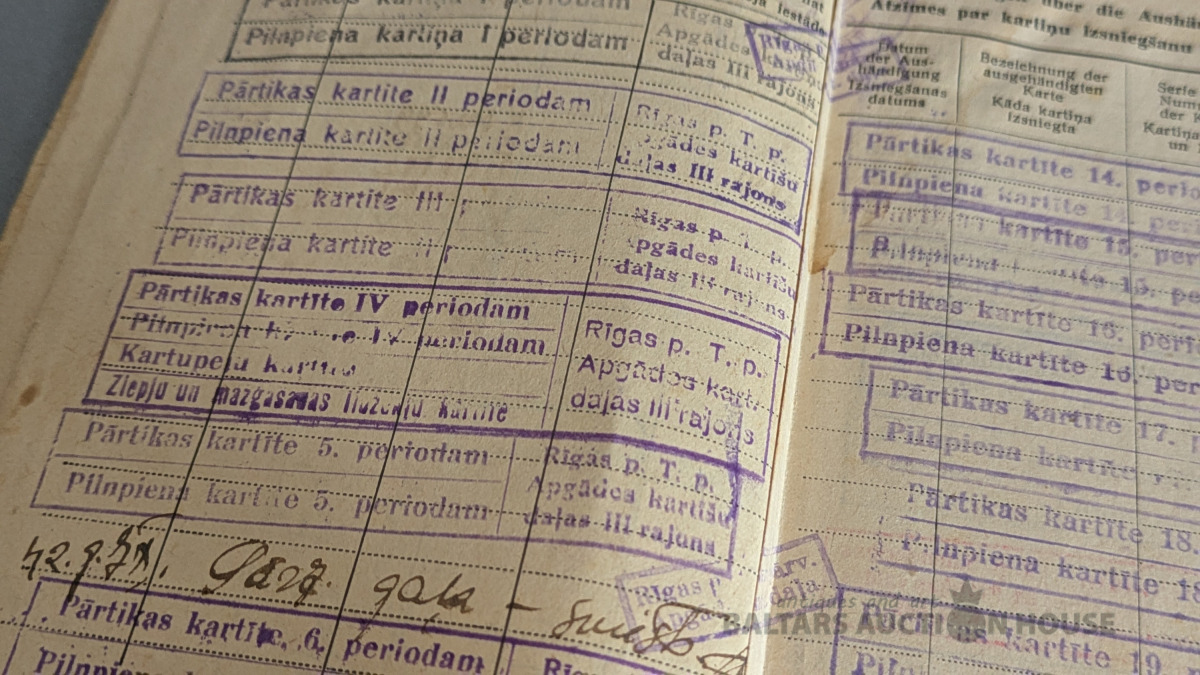 Pārtikas kartiņa I periodam
Pilnpiena kartiņa I periodam
Rīgas
Apgādes
daļas III rajons
Pārtikas kartīte II periodam
Pilnpiena kartīte II periodam
Rīgas p. T. p.
Apgādes kartīšu
daļas III rajons
Pārtikas kartīte III
Pilnpiena kartīte
Rīgas p. T. p.
Apgādes kartīšu
daļas III rajons
Pārtikas kartīte IV periodam
Pilnpiena kartīte IV periodam
Kartupeļu kartīte
Ziepju un mazgāšanas līdzekļu kartīte
Rīgas p. T. p.
Apgādes kart.
daļas III rajons
Pārtikas kartīte 5. periodam
Pilnpiena kartīte 5. periodam
Rīgas p. T. p.
Apgādes kartīšu
daļas III rajons
gaļa –
Pārtikas kartīte 6. periodam
Pilnpiena
periodam
Rīgas
über die Aushä
Atzīmes par kartiņu izsniegšanu
Datum
der Aus-
händigung
Izsniegšanas
datums
Bezeichnung der
ausgehändigten
Karte
Kāda kartiņa
izsniegta
Serie
Num
der K
Kartiņa
un
Pārtikas kartīte 14. perio
Pilnpiena kartīte 14. per
Pārtikas kartīte 15. per
Pilnpiena kartīte 15. pe
Pārtikas kartīte 16. peri
Pilnpiena kartīte 16. per
Pārtikas kartīte 17. p
Pilnpiena kartīte
Pārtikas kartīte 18.
Pilnpiena kartīte 18
kartīte 19. p
Pilnp
antiques and art
BALTARS AUCTION HOUSE